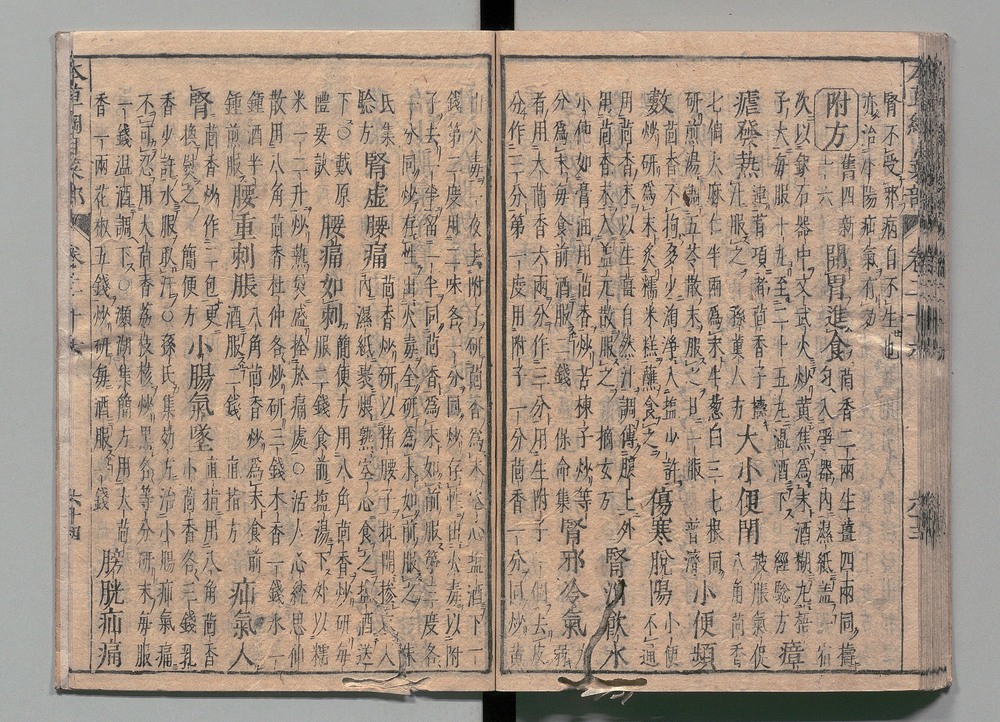 腎不受邪病自不生也
亦治小腸疝氣有効
附方舊四新十六 開胃進食茴香二兩生薑四兩同擣匀入淨器內濕紙蓋一宿
次以銀石器中文武火炒黃焦爲末酒糊丸梧
子大每服十丸至二十五丸溫酒下 經驗方 瘴
瘧發熱連背項者茴香子擣汁服之 孫眞人方 大小便閉鼓脹氣促八角茴香
七個大麻仁半兩爲末生葱白三七根同
研煎湯調五苓散末服之日一服 普濟 小便頻
數茴香不拘多少淘淨入塩少許炒研爲末炙糯米糕蘸食之 傷寒脫陽小便不通
用茴香末以生薑自然汁調傅腹上外
用茴香末入益元散服之 摘玄方 腎消飲水
小便如膏油用茴香炒苦楝子炒等
分爲末每食前酒服二錢 保命集 腎邪冷氣力弱
者用大茴香六兩分作三分用生附子一個去皮
分作三分第一度用附子一分茴香一分同炒黃
出火毒一夜去附子研茴香爲末空心塩酒下一
錢第二度用二味各一分同炒存性出火毒以附
子去一半留一半同茴香爲末如前服第三度各
一分同炒存性出火毒全研爲末如前服之 朱
氏集驗方 腎虛腰痛茴香炒研以猪腰子批開摻末入內濕紙裹煨熟空心食之塩酒送
下○戴原禮要訣 腰痛如刺簡便方用八角茴香炒研每服二錢食前塩湯下外以糯
米一二升炒熱袋盛拴於痛處○活人心統思仙
散用八角茴香杜仲各炒研三錢木香一錢水一
鍾酒半鍾煎服 腰重刺脹八角茴香炒爲末食前酒服二錢 直指方 疝氣入
腎茴香炒作二包更換熨之 簡便方 小腸氣墜直指用八角茴香小茴香各三錢乳
香少許水服取汗○孫氏集効方治小腸疝氣痛
不可忍用大茴香荔枝核炒黑各等分研末每服
一錢溫酒調下○瀕湖集簡方用大茴
香一兩花椒五錢炒研每酒服一錢 膀胱疝痛